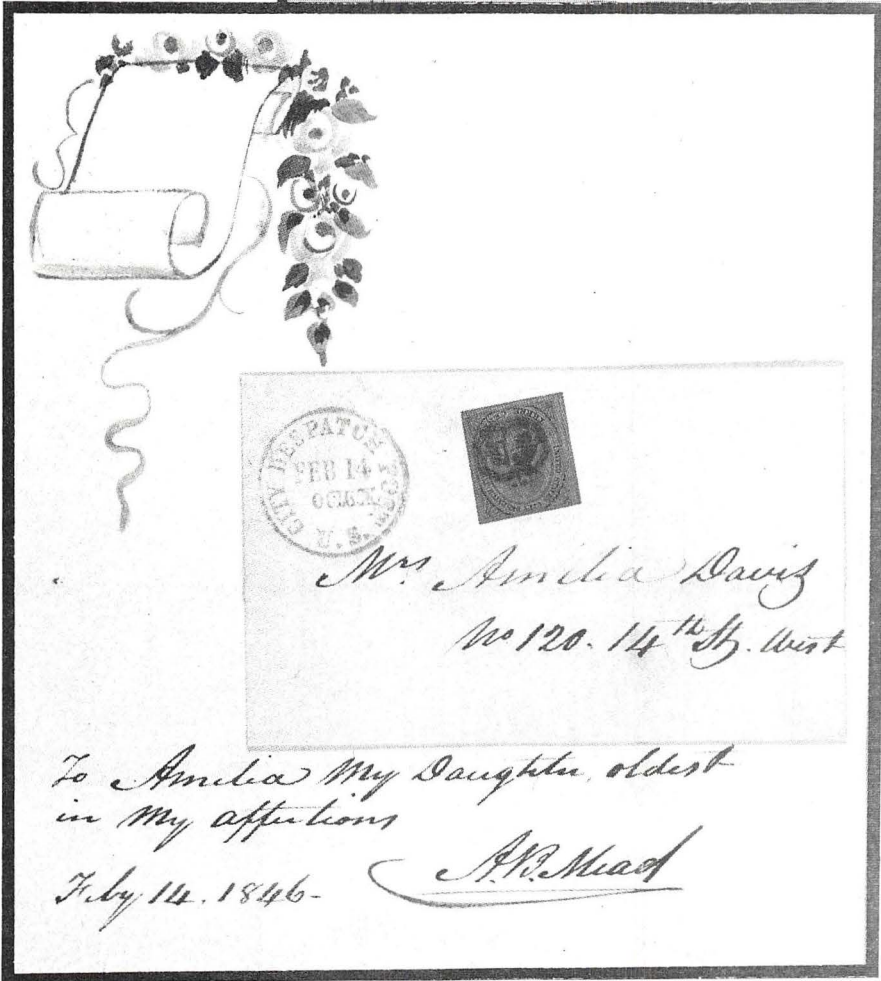 CITY DESPATCH POST
U.S.
FEB 14
O'CLOCK
Mrs Amelia Davis
No 120. 14th St. West
To Amelia My Daughter, oldest
in My affections
A.B. Mead
Feby 14. 1846-